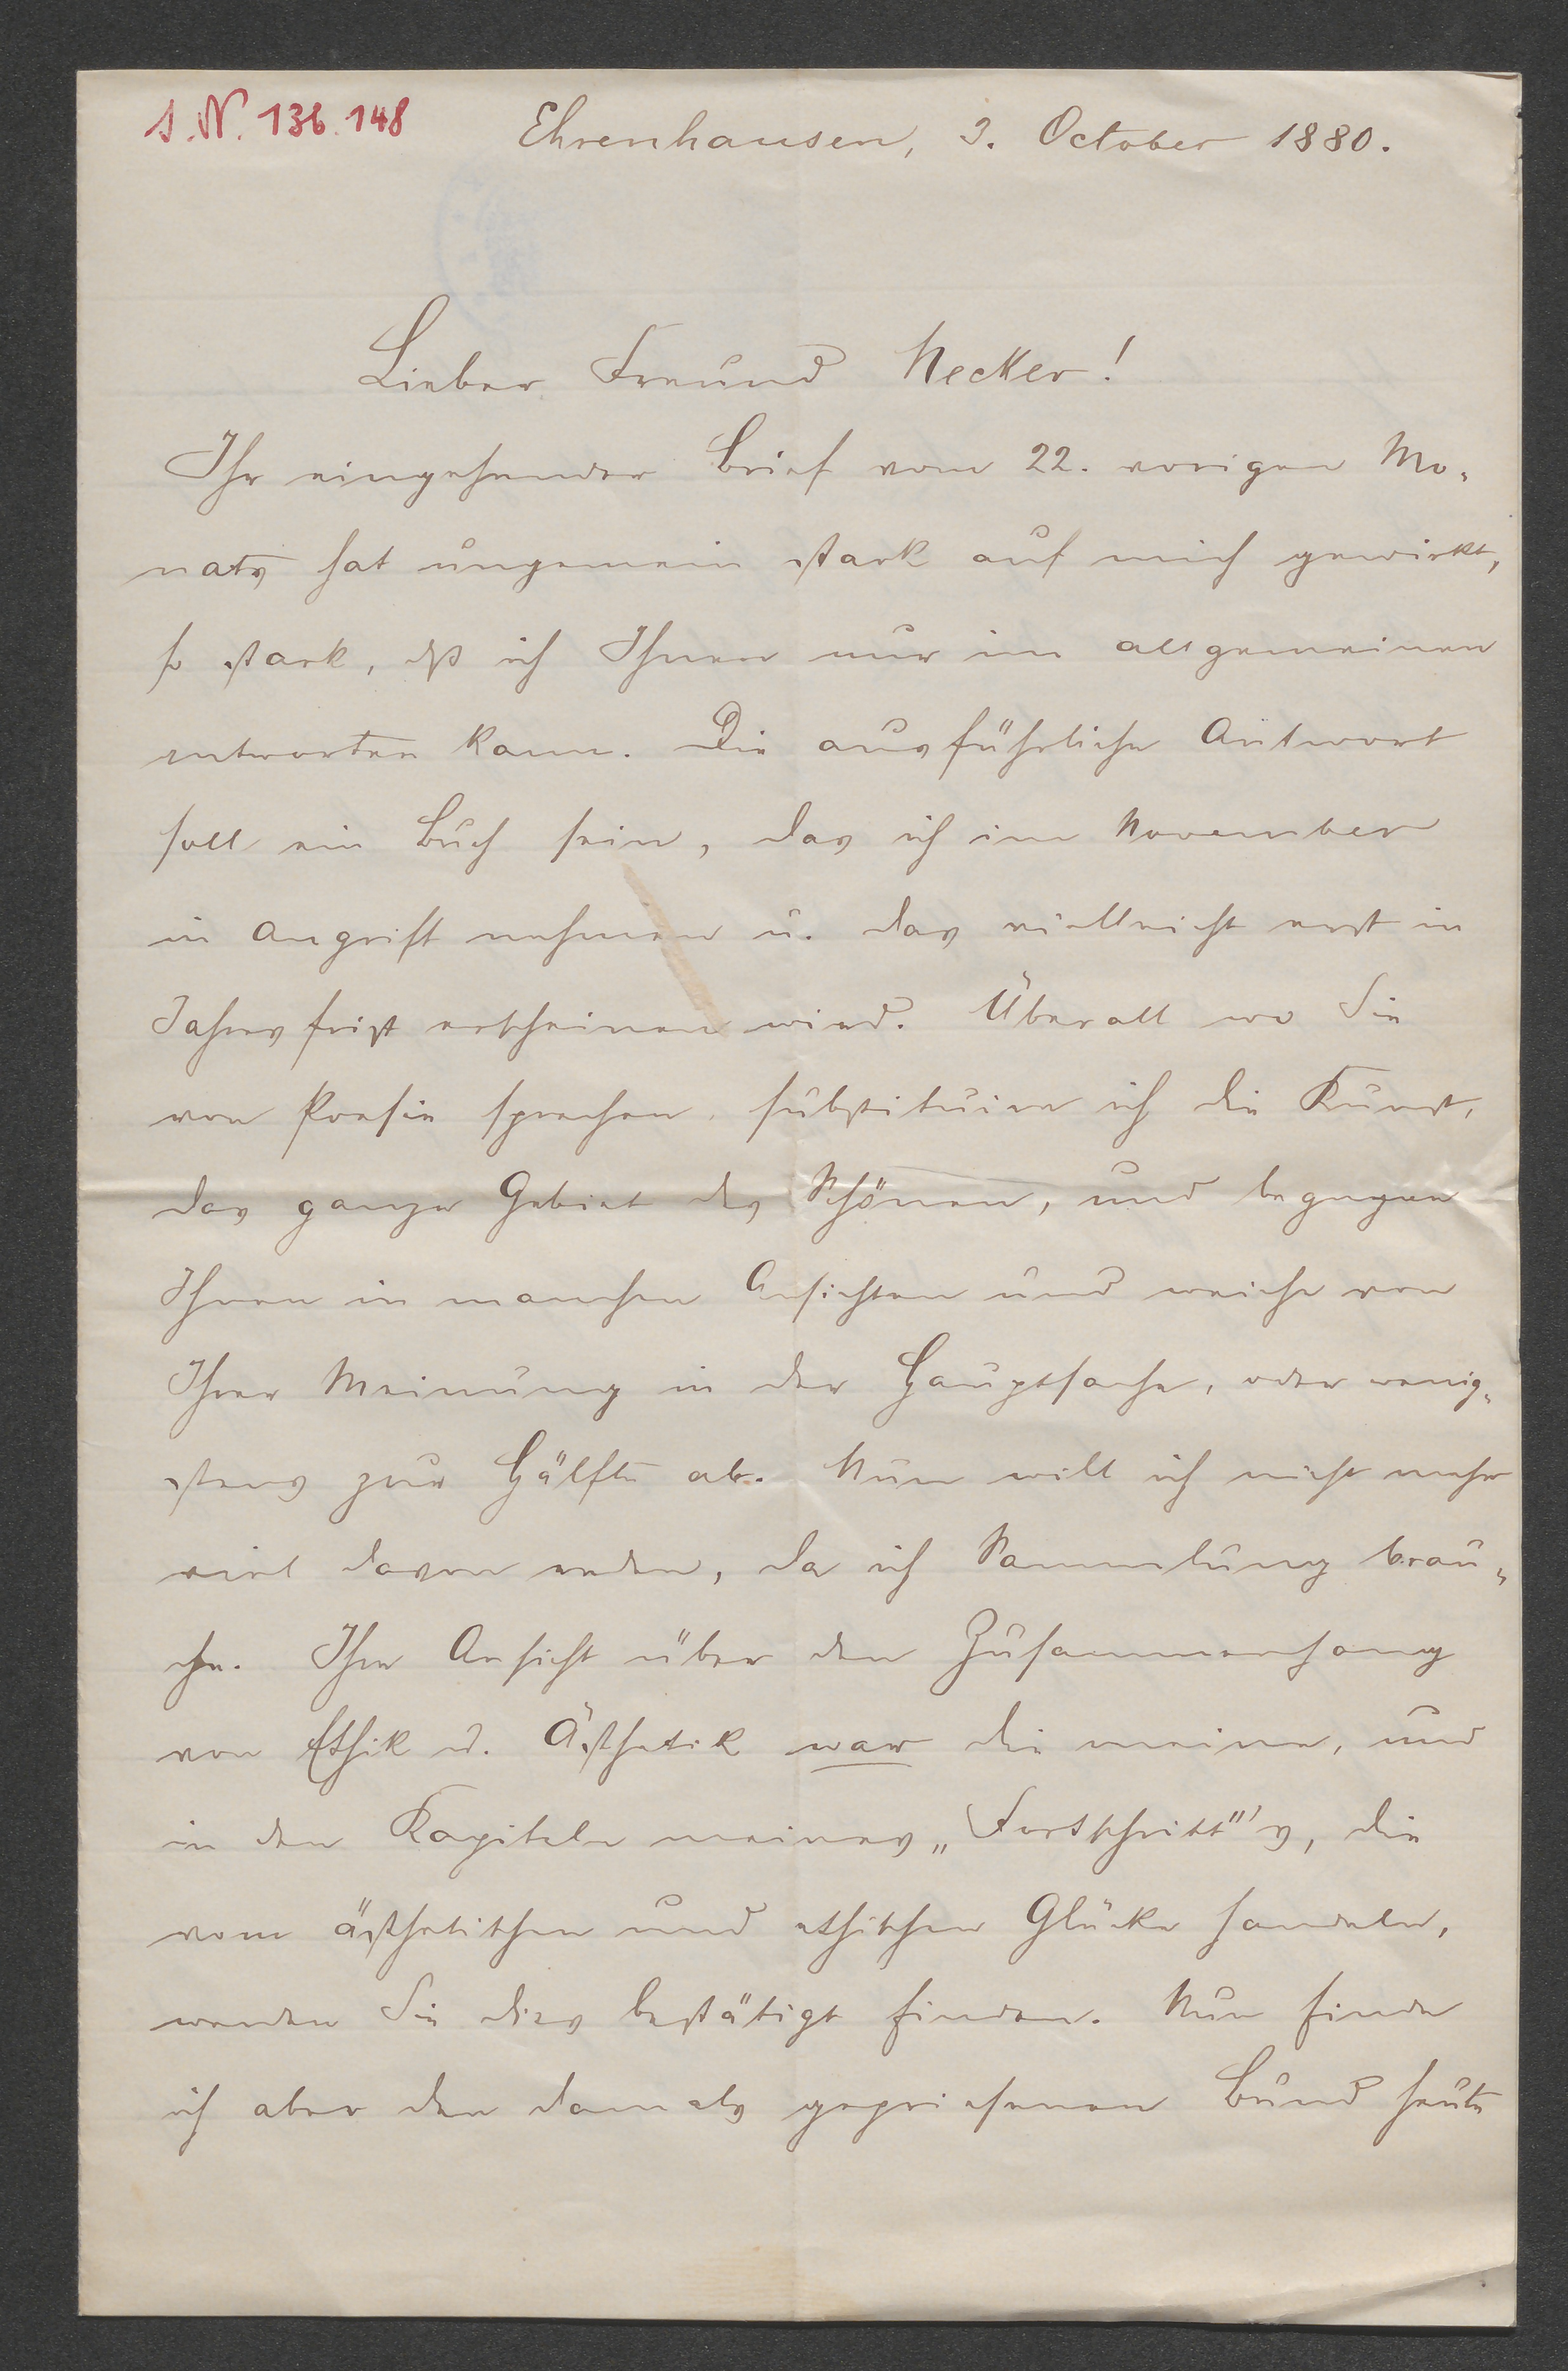 I.N. 136.148
Ehrenhausen, 3. October 1880.
Lieber Freund Necker!
Ihr eingehender Brief vom 22. vorigen Mo-
nats hat ungemein stark auf mich gewirkt,
so stark, dß ich Ihnen nur im allgemeinen
antworten kann. Die ausführliche Antwort
soll ein Buch sein, das ich im November
in Angriff nehmen u. das vielleicht erst in
Jahresfrist erscheinen wird. Überall wo Sie
von Poesie sprechen, substituire ich die Kunst,
das ganze Gebiet des Schönen, und begegne
Ihnen in manchen Ansichten und weiche von
Ihrer Meinung in der Hauptsache, oder wenig-
stens zur Hälfte ab. Nun will ich nicht mehr
viel davon reden, da ich Sammlung brau-
che. Ihre Ansicht über den Zusammenhang
von Ethik u. Ästhetik war die meine, und
in den Kapiteln meines „Fortschritt"'s, die
vom ästhetischen und ethischen Glücke handeln,
werden Sie dies bestätigt finden. Nun finde
ich aber den damals gepriesenen Bund heute